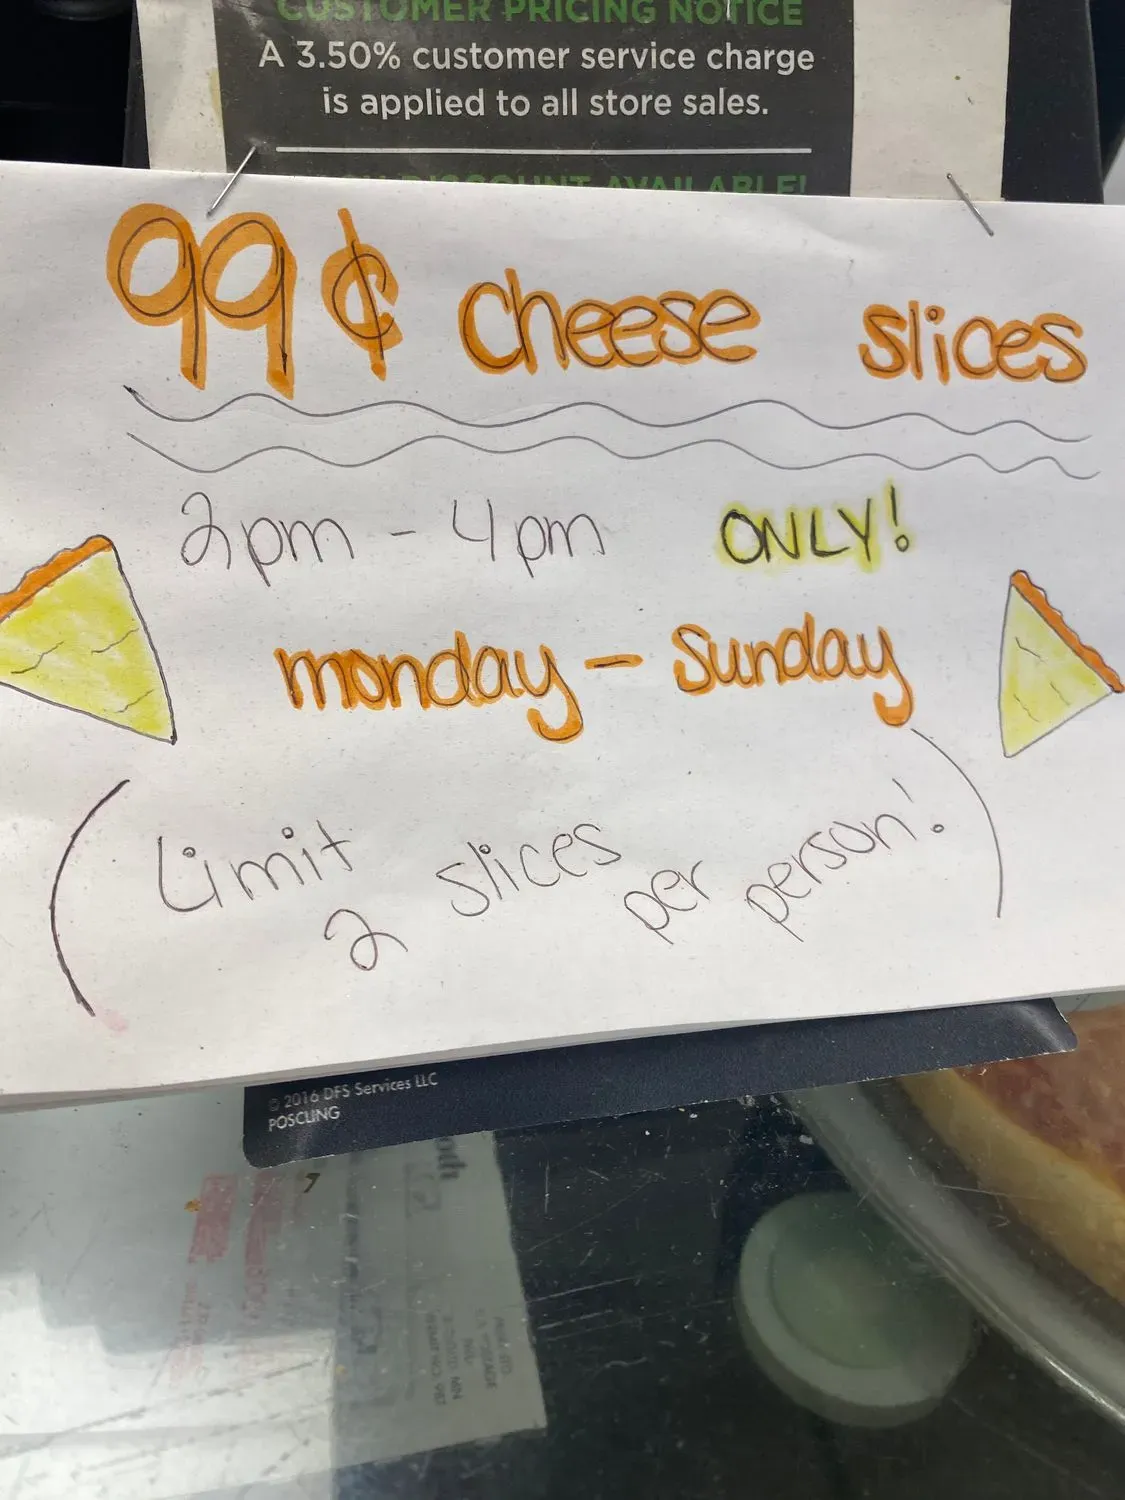 CUSTOMER PRICING NOTICE
A 3.50% customer service charge
is applied to all store sales.
DISCOUNT AVAILABLE!
99¢ cheese slices
2pm - 4pm ONLY!
monday - Sunday
(Limit 2 slices per person!)
© 2016 DFS Services LLC
POSCLING